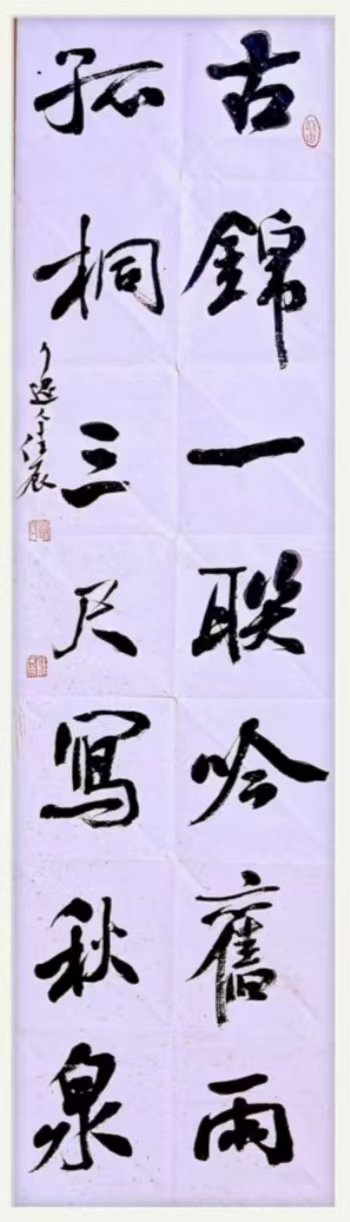 古錦一联吟舊雨
孤桐三尺寫秋泉